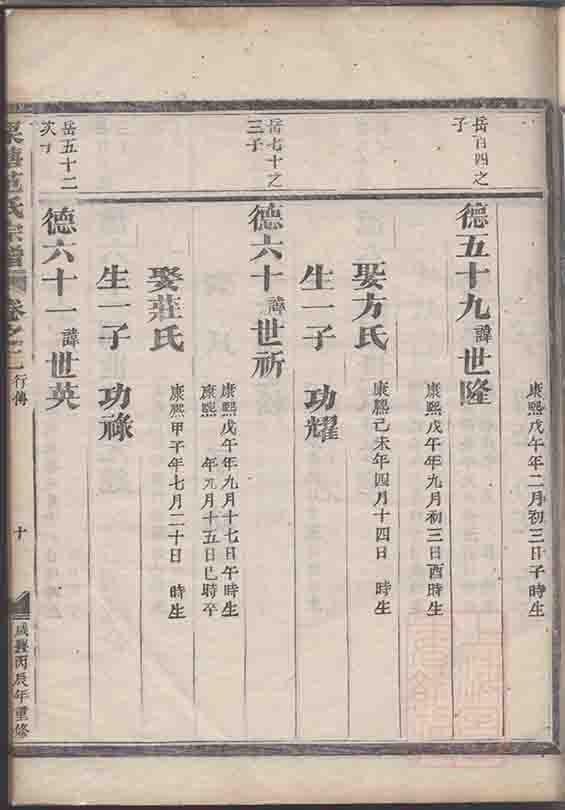 康熙戊午年二月初三日子時生
岳百四之
子
德五十九諱世隆
康熙戊午年九月初三日酉時生
娶方氏
康熙己未年四月十四日 時生
生一子 功耀
岳七十之
三子
德六十諱世祈
康熙戊午年九月十七日午時生
康熙 年九月十五日巳時卒
娶莊氏
康熙甲午年七月二十日 時生
生一子 功祿
岳五十二
次子
德六十一諱世英
氏宗譜
卷之二
行傳
十
咸豐丙辰年重修